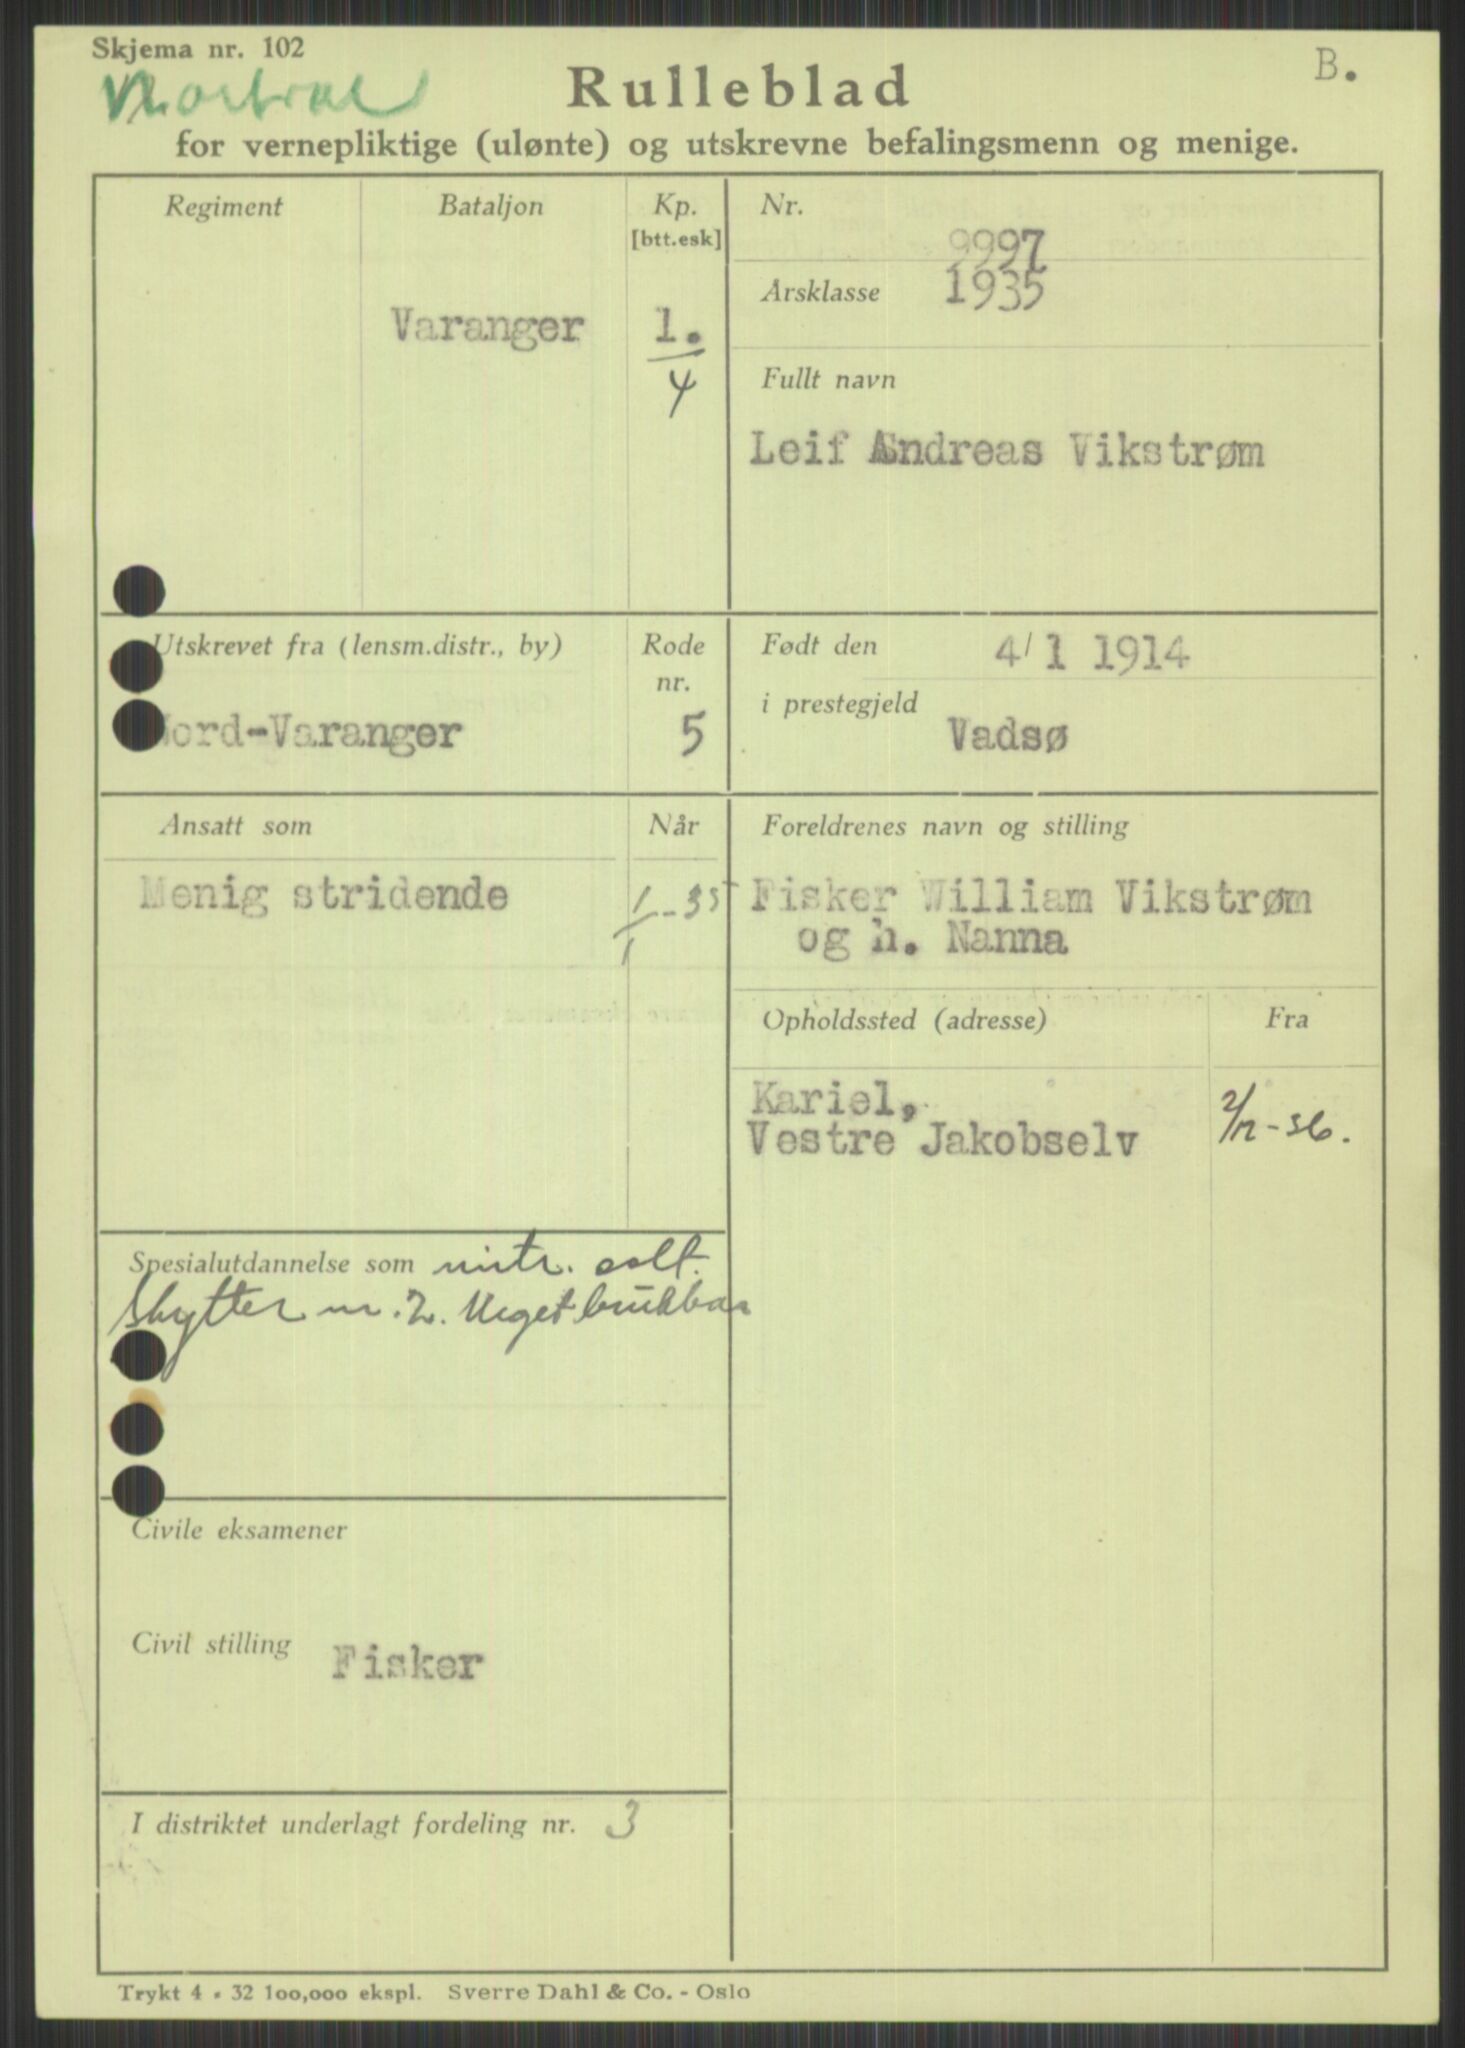 Skjema nr. 102
B.
Rulleblad
for vernepliktige (ulønte) og utskrevne befalingsmenn og menige.
Regiment
Bataljon
Varanger
Kp.
[btt.esk]
1.
4
Nr.
9997
Årsklasse
1935
Fullt navn
Leif Andreas Vikstrøm
Utskrevet fra (lensm.distr., by)
Nord-Varanger
Rode
nr.
5
Født den 4/1 1914
i prestegjeld
Vadsø
Ansatt som
Menig stridende
Når
1/1-35
Foreldrenes navn og stilling
Fisker William Vikstrøm
og h. Nanna
Opholdssted (adresse)
Kariel,
Vestre Jakobselv
Fra
2/12-36.
Spesialutdannelse som mitr.
Skytter nr. 2. Meget brukbar
Civile eksamener
Civil stilling Fisker
I distriktet underlagt fordeling nr. 3
Trykt 4 - 32 100,000 ekspl. Sverre Dahl & Co. - Oslo